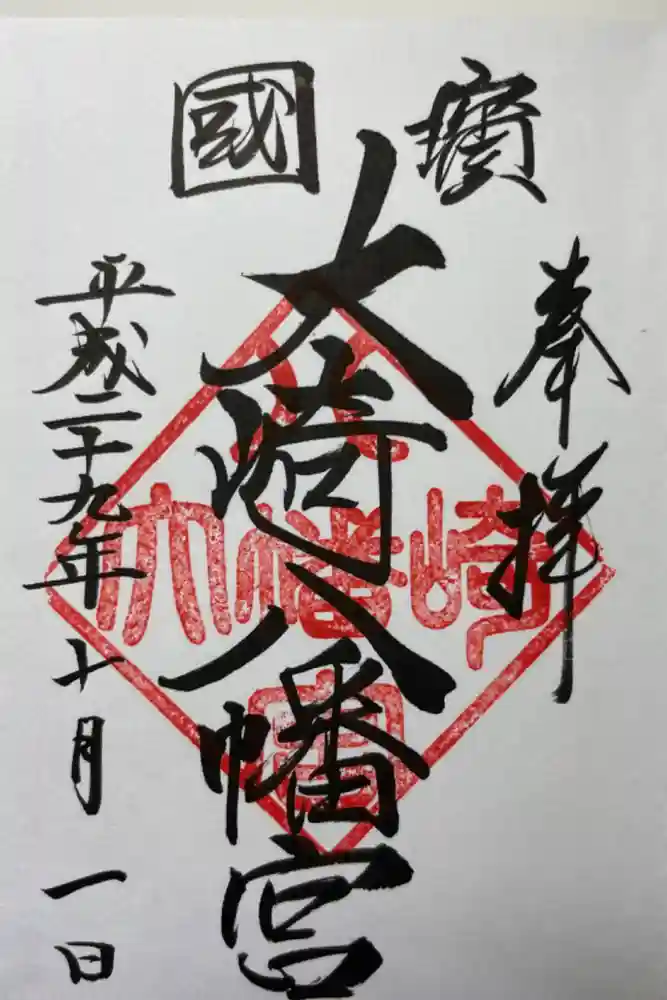 國寳
奉拝
大崎八幡宮
平成二十九年十月一日
大崎八幡宮